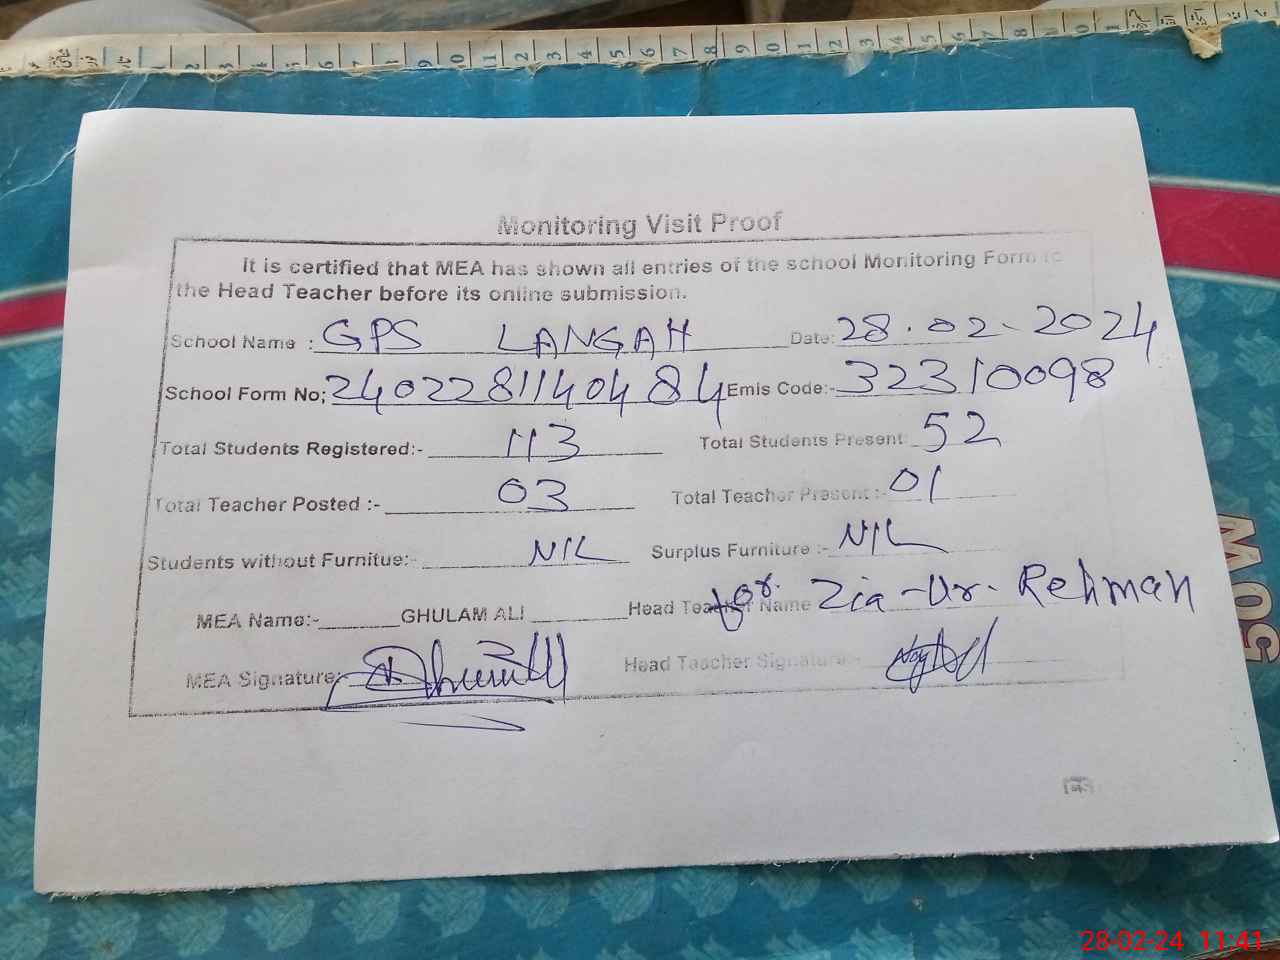 Monitoring Visit Proof
It is certified that MEA has shown all entries of the school Monitoring Form to
the Head Teacher before its online submission.
School Name : GPS LANGAH Date: 28.02-2024
School Form No; 24022811404 84 Emis Code:- 32310098
Total Students Registered:- 113 Total Students Present: 52
Total Teacher Posted :- 03 Total Teacher Present :- 01
Students without Furnitue:- NIL Surplus Furniture :- NIL
MEA Name:- GHULAM ALI Head Teacher Name for. Zia-Ur-Rehman
MEA Signature: Head Teacher Signature:-
50W
28-02-24 11:41